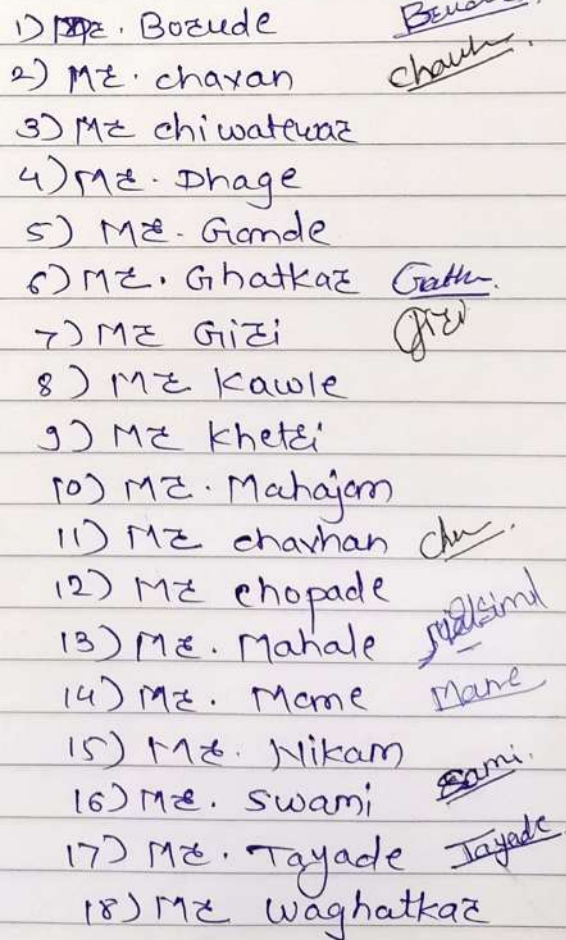 1) Mr. Borude
2) Mr. chavan
3) Mr chiwatewar
4) Mr. Dhage
5) Mr. Gonde
6) Mr. Ghatkar
7) Mr Giri Giri
8) Mr Kawle
9) Mr Khetri
10) Mr. Mahajan
11) Mr chavhan
12) Mr chopade
13) Mr. Mahale
14) Mr. Mane Mane
15) Mr. Nikam
16) Mr. Swami Sami.
17) Mr. Tayade Tayade
18) Mr waghatkar